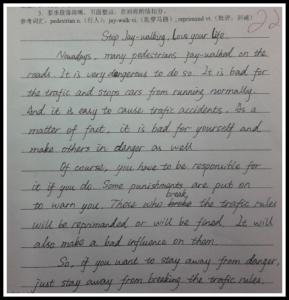 3. 要求段落清晰，书面整洁，否则酌情扣分。
参考词汇：pedestrian n.（行人）；jay-walk vi.（乱穿马路）；reprimand vt.（批评；训诫）
22
Stop Jay-walking, Love your life
Nowadays, many pedestrians jay-walked on the
roads. It is very dangerous to do so. It is bad for
the trafic and stops cars from running normally.
And it is easy to cause trafic accidents. As a
matter of fact, it is bad for yourself and
make others in danger as well.
Of course, you have to be responsible for
it if you do. Some punishments are put on
to warn you. Those who broke break the trafic rules
will be reprimanded or will be fined. It will
also make a bad influence on them.
So, if you want to stay away from danger,
just stay away from breaking the trafic rules.